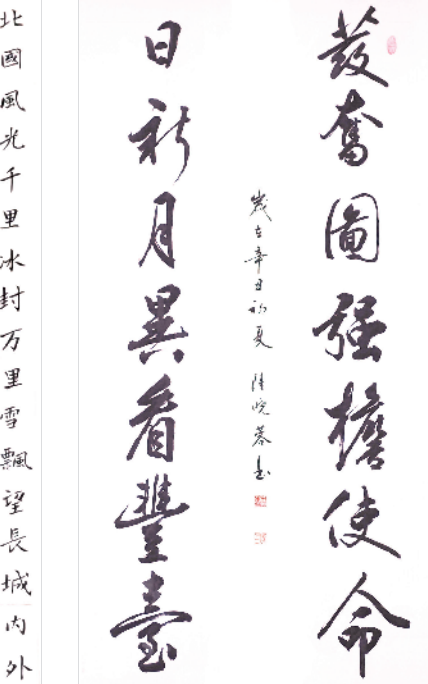 發奮圖强擔使命
歲在辛丑初夏 陸曉蓉书
日新月異看豐臺
北國風光千里冰封万里雪飄望長城内外